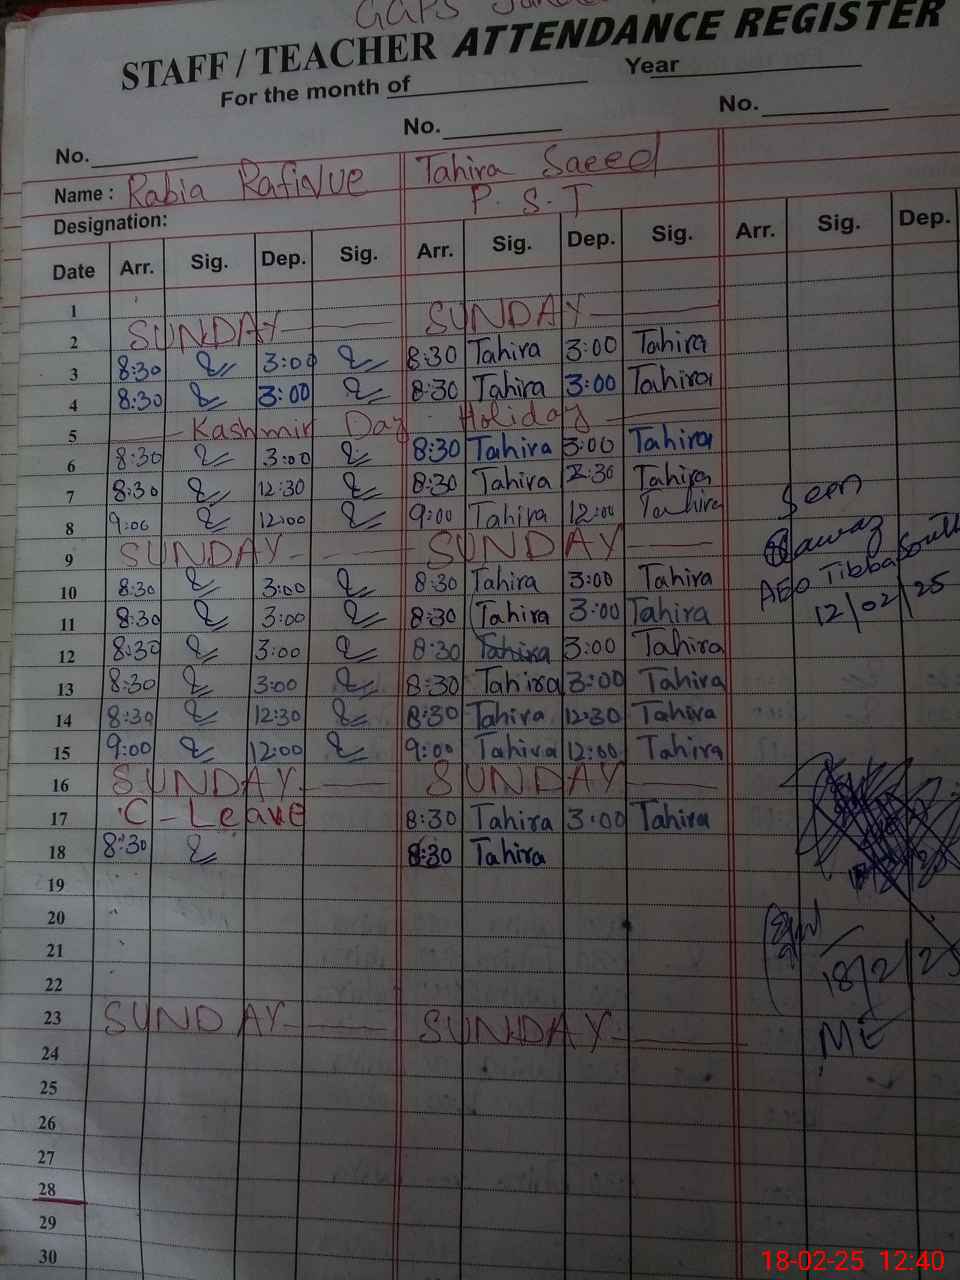 GGPS
STAFF / TEACHER ATTENDANCE REGISTER
For the month of Year
No. No. No.
Name : Rabia Rafique Tahira Saeed
Designation: P. S. T
Date Arr. Sig. Dep. Sig. Arr. Sig. Dep. Sig. Arr. Sig. Dep.
1
2 SUNDAY SUNDAY
3 8:30 3:00 8:30 Tahira 3:00 Tahira
4 8:30 3:00 8:30 Tahira 3:00 Tahira
5 Kashmir Day Holiday
6 8:30 3:00 8:30 Tahira 3:00 Tahira
7 8:30 12:30 8:30 Tahira 2:30 Tahira
8 9:00 12:00 9:00 Tahira 12:00 Tahira
Seen
9 SUNDAY SUNDAY
AEO Tibba South
10 8:30 3:00 8:30 Tahira 3:00 Tahira
12/02/25
11 8:30 3:00 8:30 Tahira 3:00 Tahira
12 8:30 3:00 8:30 Tahira 3:00 Tahira
13 8:30 3:00 8:30 Tahira 3:00 Tahira
14 8:30 12:30 8:30 Tahira 12:30 Tahira
15 9:00 12:00 9:00 Tahira 12:00 Tahira
16 SUNDAY SUNDAY
17 C - Leave 8:30 Tahira 3:00 Tahira
18 8:30 8:30 Tahira
19
20
21
18/2/25
22
23 SUNDAY SUNDAY
ME
24
25
26
27
28
29
30
18-02-25 12:40